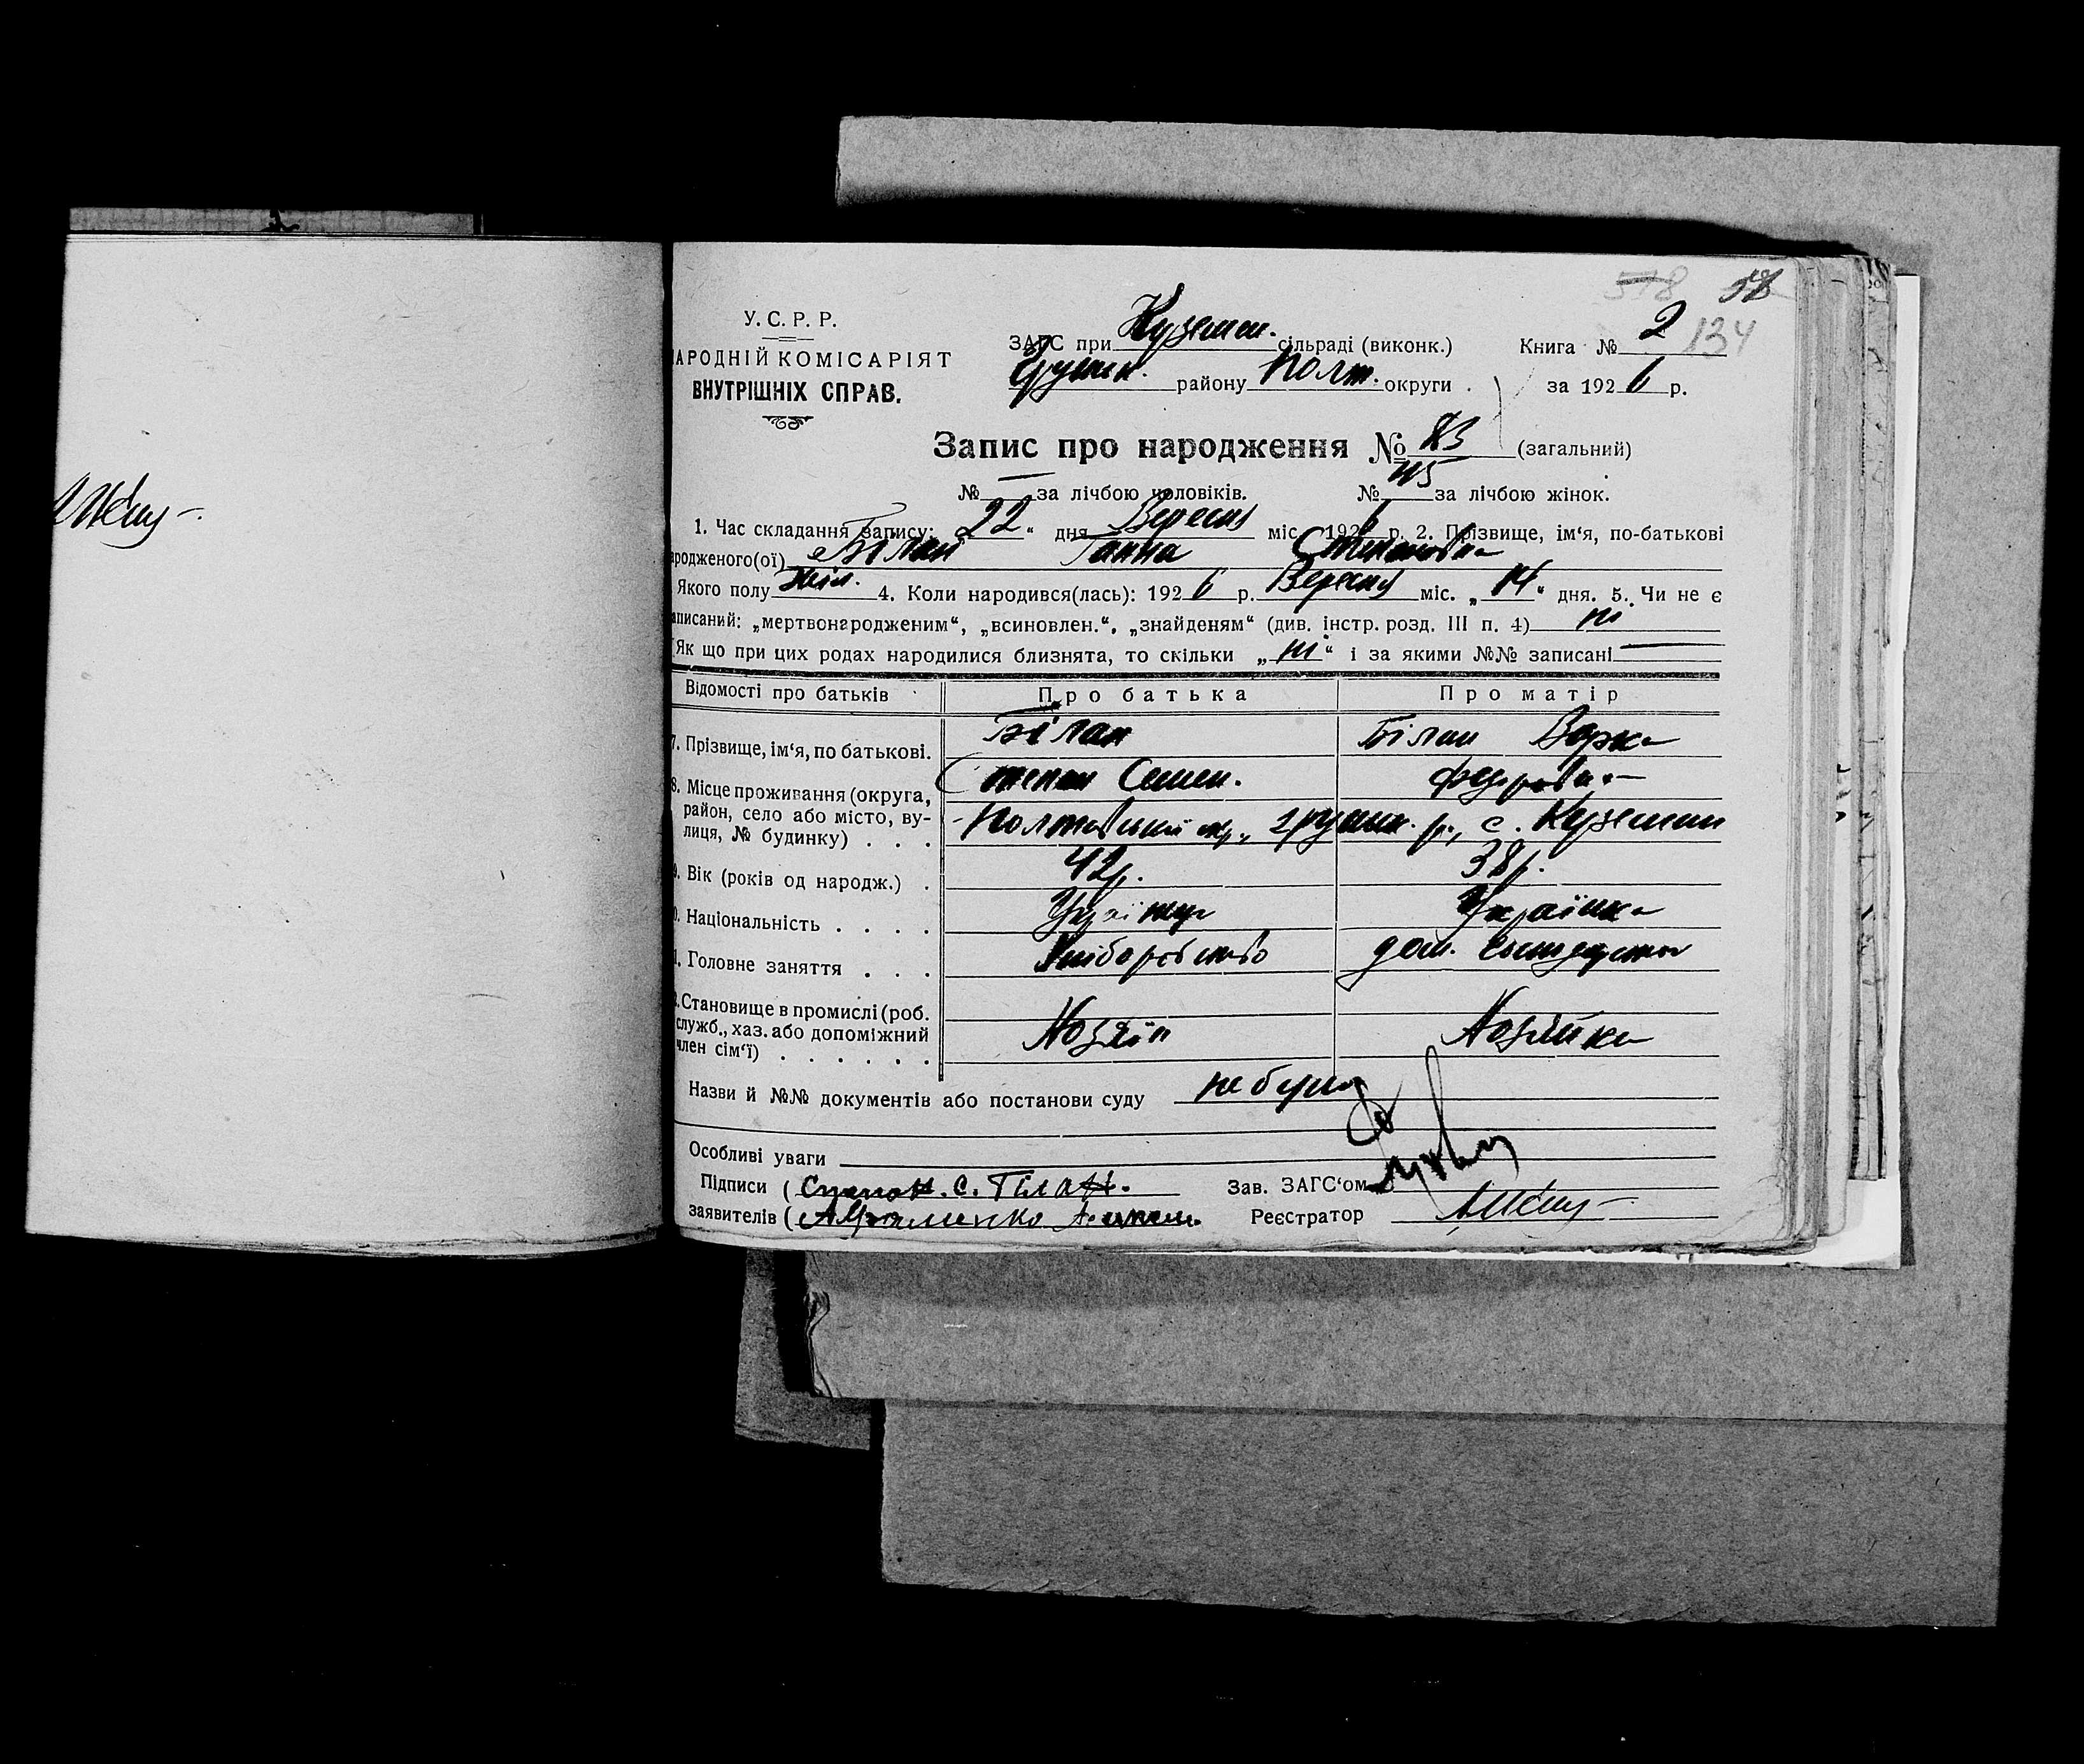 58
134
У. С. Р. Р.
АРОДНІЙ КОМІСАРІЯТ
ВНУТРІШНІХ СПРАВ.
ЗАГС при Куземен. сільраді (виконк.)
Грунськ. району Полт. округи
Книга № 2
за 1926 р.
Запис про народження № 83 (загальний)
№ — за лічбою чоловіків. № 45 за лічбою жінок.
1. Час складання запису: 22 " дня Вересня міс. 1926 р. 2. Прізвище, ім'я, по-батькові
родженого(ої) Білан Ганна Степановна
Якого полу жін. 4. Коли народився(лась): 1926 р. Вересня міс. „ 14 " дня. 5. Чи не є
аписаний: „мертвонародженим", „всиновлен.", „знайденям" (див. інстр. розд. III п. 4) ні
Як що при цих родах народилися близнята, то скільки „ ні " і за якими №№ записані —
Відомості про батьків Про батька Про матір
7. Прізвище, ім'я, по батькові. Білан Степан Семен. Білан Федоровна
8. Місце проживання (округа, район, село або місто, вулиця, № будинку) . . . Полтавської окр., грунськ. р., с. Куземин
9. Вік (років од народж.) . 42 р. 38 р.
0. Національність . . . . Українець Українка
1. Головне заняття . . . Хліборобство дом. господарство
2. Становище в промислі (роб. служб., хаз. або допоміжний член сім'ї) . . . . . . Хозяїн Хозяйка
Назви й №№ документів або постанови суду не було
Особливі уваги
Підписи ( Степан. С. Білан.
Зав. ЗАГС'ом
заявителів (
Реєстратор